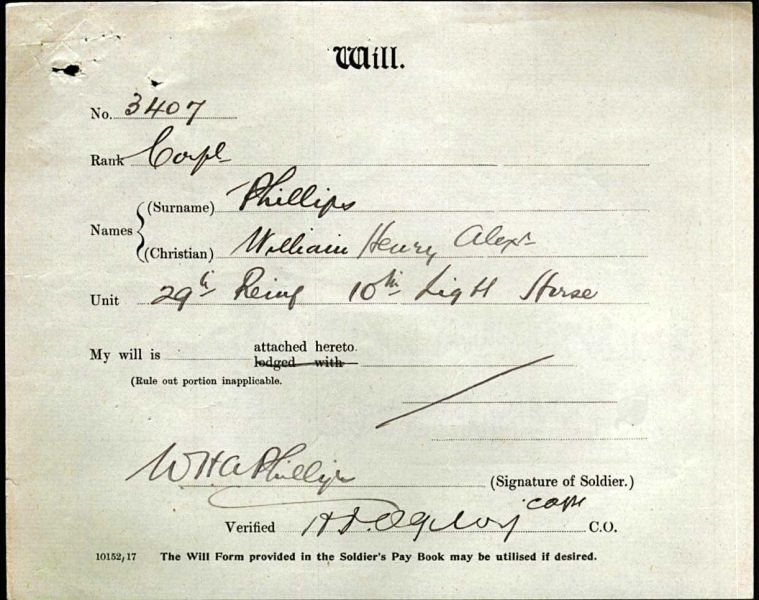 Will.
No. 3407
Rank Corpl
Names (Surname) Phillips
(Christian) William Henry Alexr
Unit 29th Reinf 10th Light Horse
My will is attached hereto.
lodged with
(Rule out portion inapplicable.
WHA Phillips (Signature of Soldier.)
Verified Capt C.O.
10152/17 The Will Form provided in the Soldier's Pay Book may be utilised if desired.